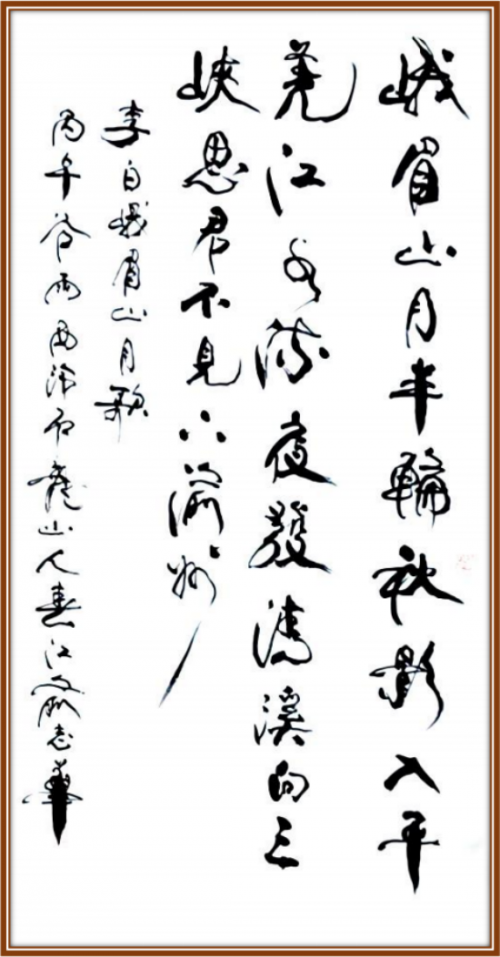 峨眉山月半輪秋影入平
羌江水流夜發清溪向三
峽思君不見下渝州
李白峨眉山月歌
丙午谷雨西泠石龍山人江志華